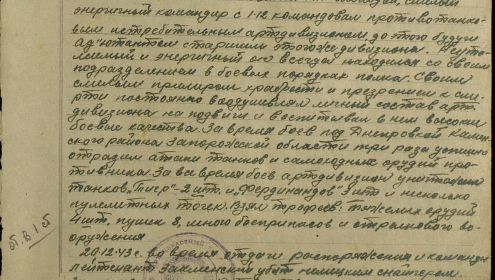 энергичный командир с 1-12 командовал противотанко-
вым истребительным артдивизионом до этого будучи
Ад'ютантом старшим этого же дивизиона. Неуто-
мимый и энергичный он всегда находился со своим
подразделением в боевых порядках полка. Своим
смелым примером храбрости и презрением к сме-
рти постоянно воодушевлял личный состав арт-
дивизиона на подвиги и воспитывал в нем высокие
боевые качества. За время боев под Днепровкой Камен-
ского района Запорожской области три раза успешно
отрадил атаки танков и самоходных орудий про-
тивника. За все время боев артдивизион уничтожил
танков, "Тигр"-2 шт. и "Фердинандов" 3 шт и несколько
пулеметных точек. Взял трофеев: тяжелых орудий
4 шт, пушек 8, много боеприпасов и стрелкового во-
оружения
20.12.43 г. во время отдачи распоряжения и команды
лейтенант убит немецким снайпером.